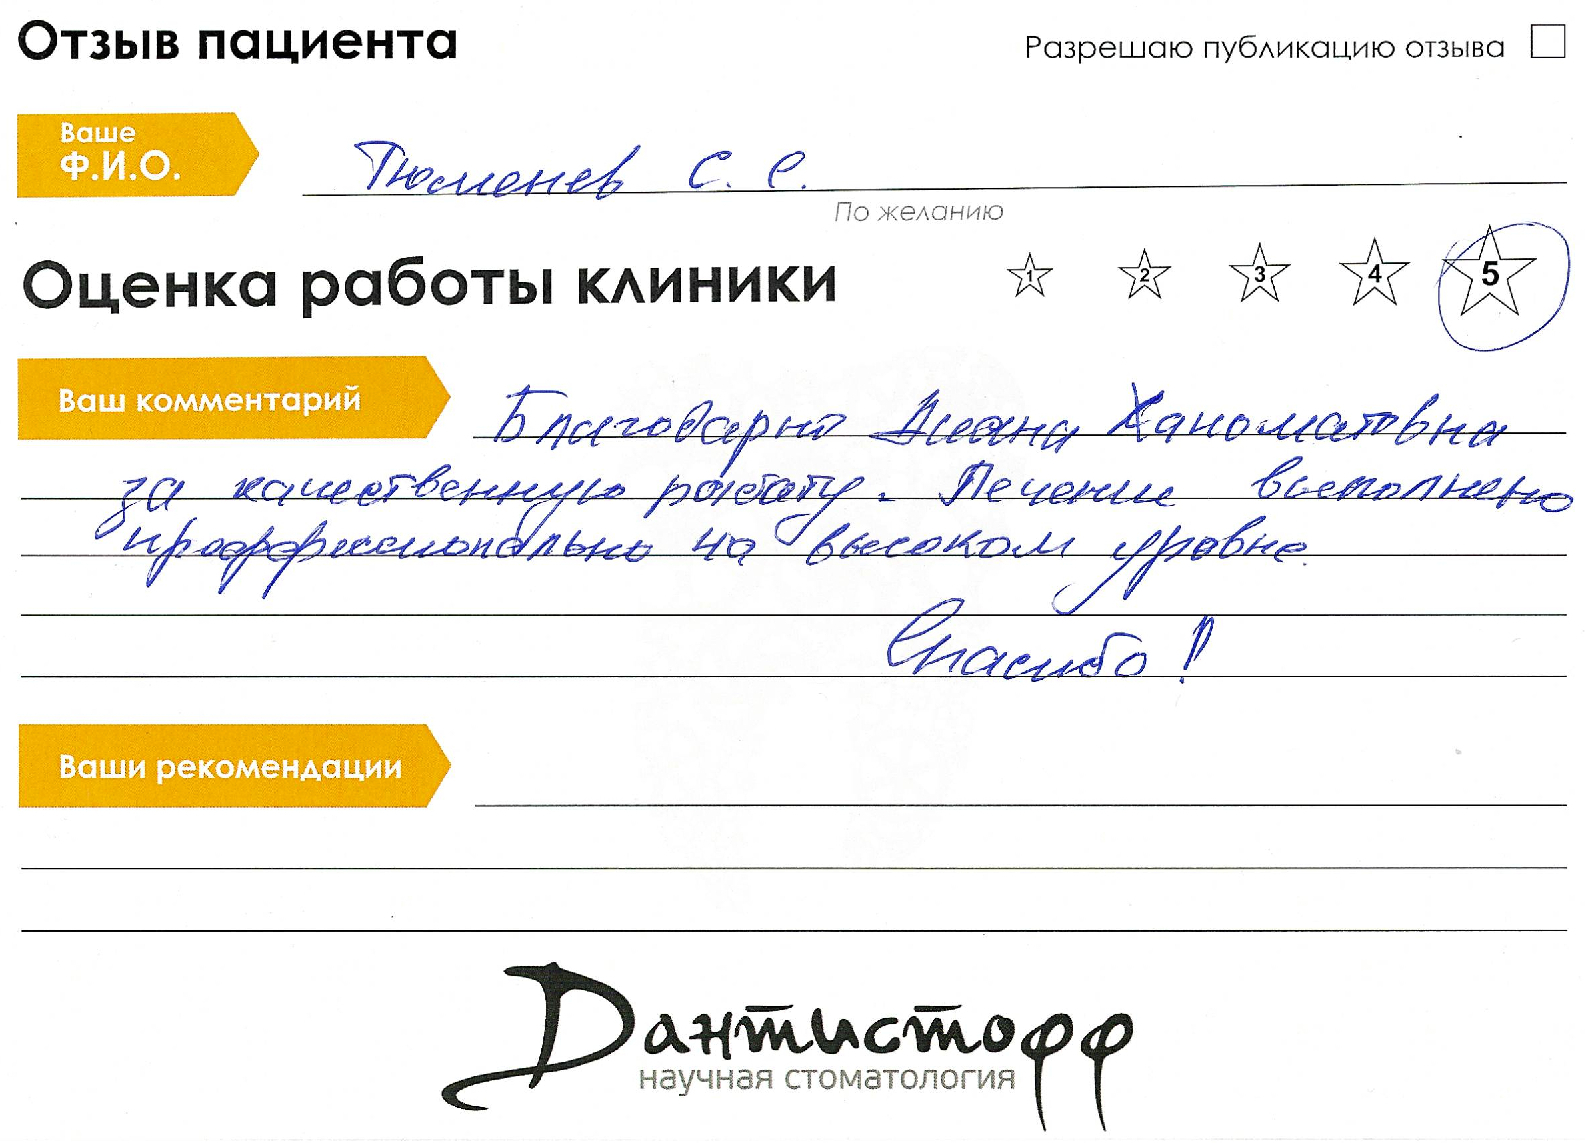 Отзыв пациента
Разрешаю публикацию отзыва
Ваше
Ф.И.О.
Тюменев С. С.
По желанию
Оценка работы клиники
1 2 3 4 5
Ваш комментарий
Благодарю Диана Ханоматовна
за качественную работу. Лечение выполнено
профессионально на высоком уровне.
Спасибо!
Ваши рекомендации
Дантистофф
научная стоматология